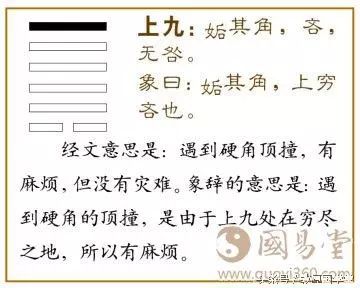 上九：姤其角，吝，
无咎。
象曰：姤其角，上穷
吝也。
经文意思是：遇到硬角顶撞，有
麻烦，但没有灾难。象辞的意思是：遇
到硬角的顶撞，是由于上九处在穷尽
之地，所以有麻烦。
國易堂
www.guoyi360.com